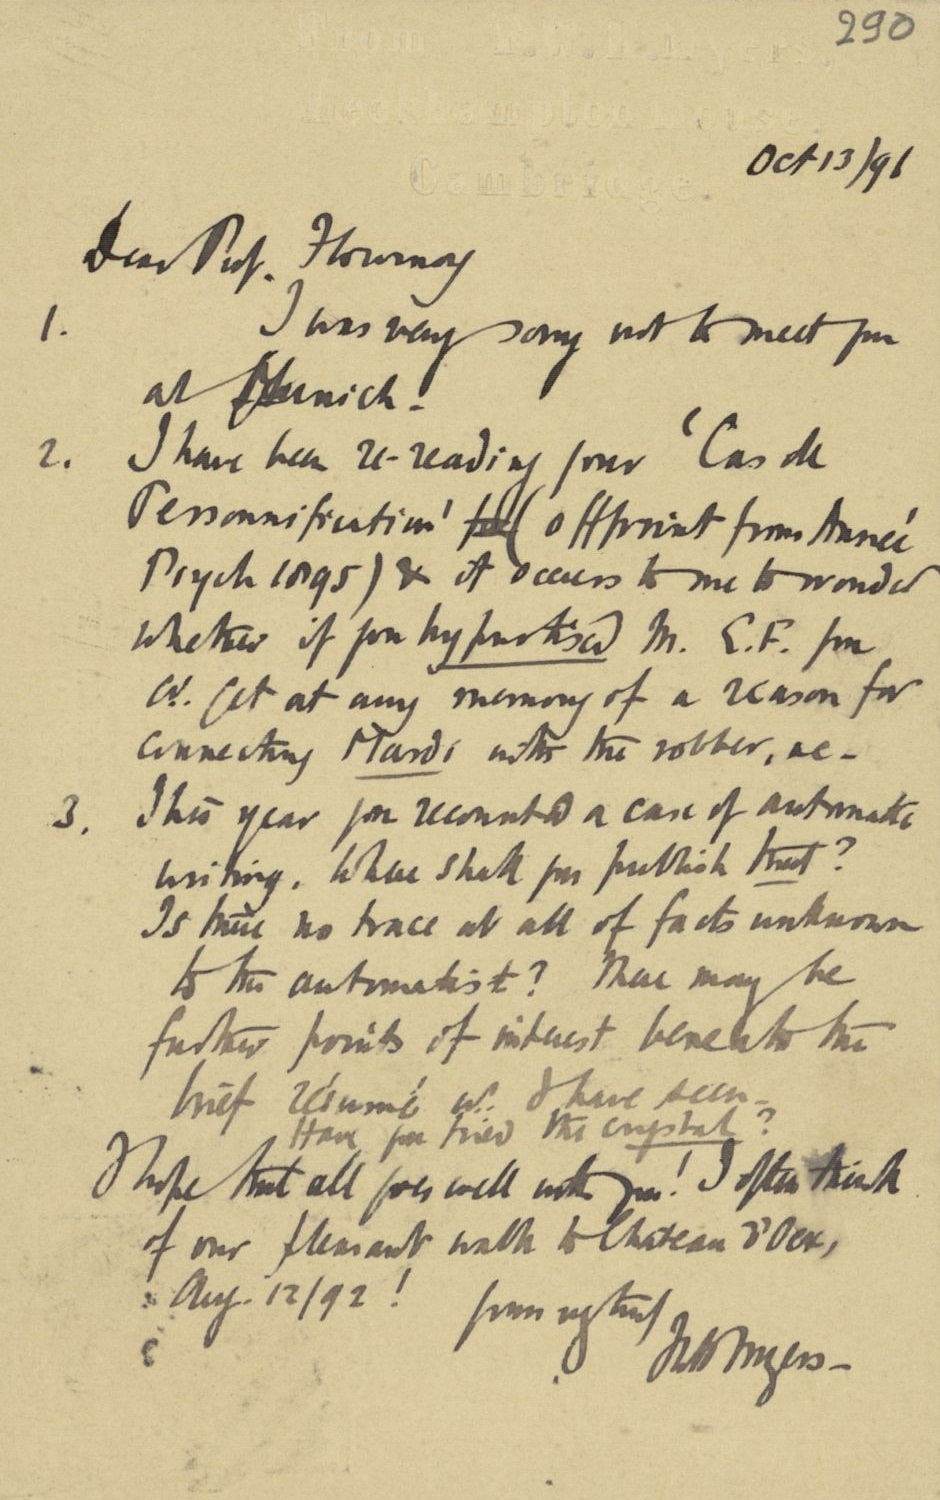 290
From F.W.H.Myers,
Leckhampton House,
Cambridge.
Oct 13/96
Dear Prof. Flournoy
1. I was very sorry not to meet you
at Munich.
2. I have been re-reading your 'Cas de
Personnification' (offprint from Année
Psych 1895) & it occurs to me to wonder
whether if you hypnotised M. E.F. you
cd. get at any memory of a reason for
connecting Mardi with the robber, &c-
3. This year you recounted a case of automatic
writing. Where shall you publish that?
Is there no trace at all of facts unknown
to the automatist? There may be
further points of interest beneath the
brief résumé wh. I have seen-
Have you tried the crystal?
I hope that all goes well with you! I often think
of our pleasant walk to Chateau d'Oex,
Aug. 12/92!
yours vy truly
FWH Myers-